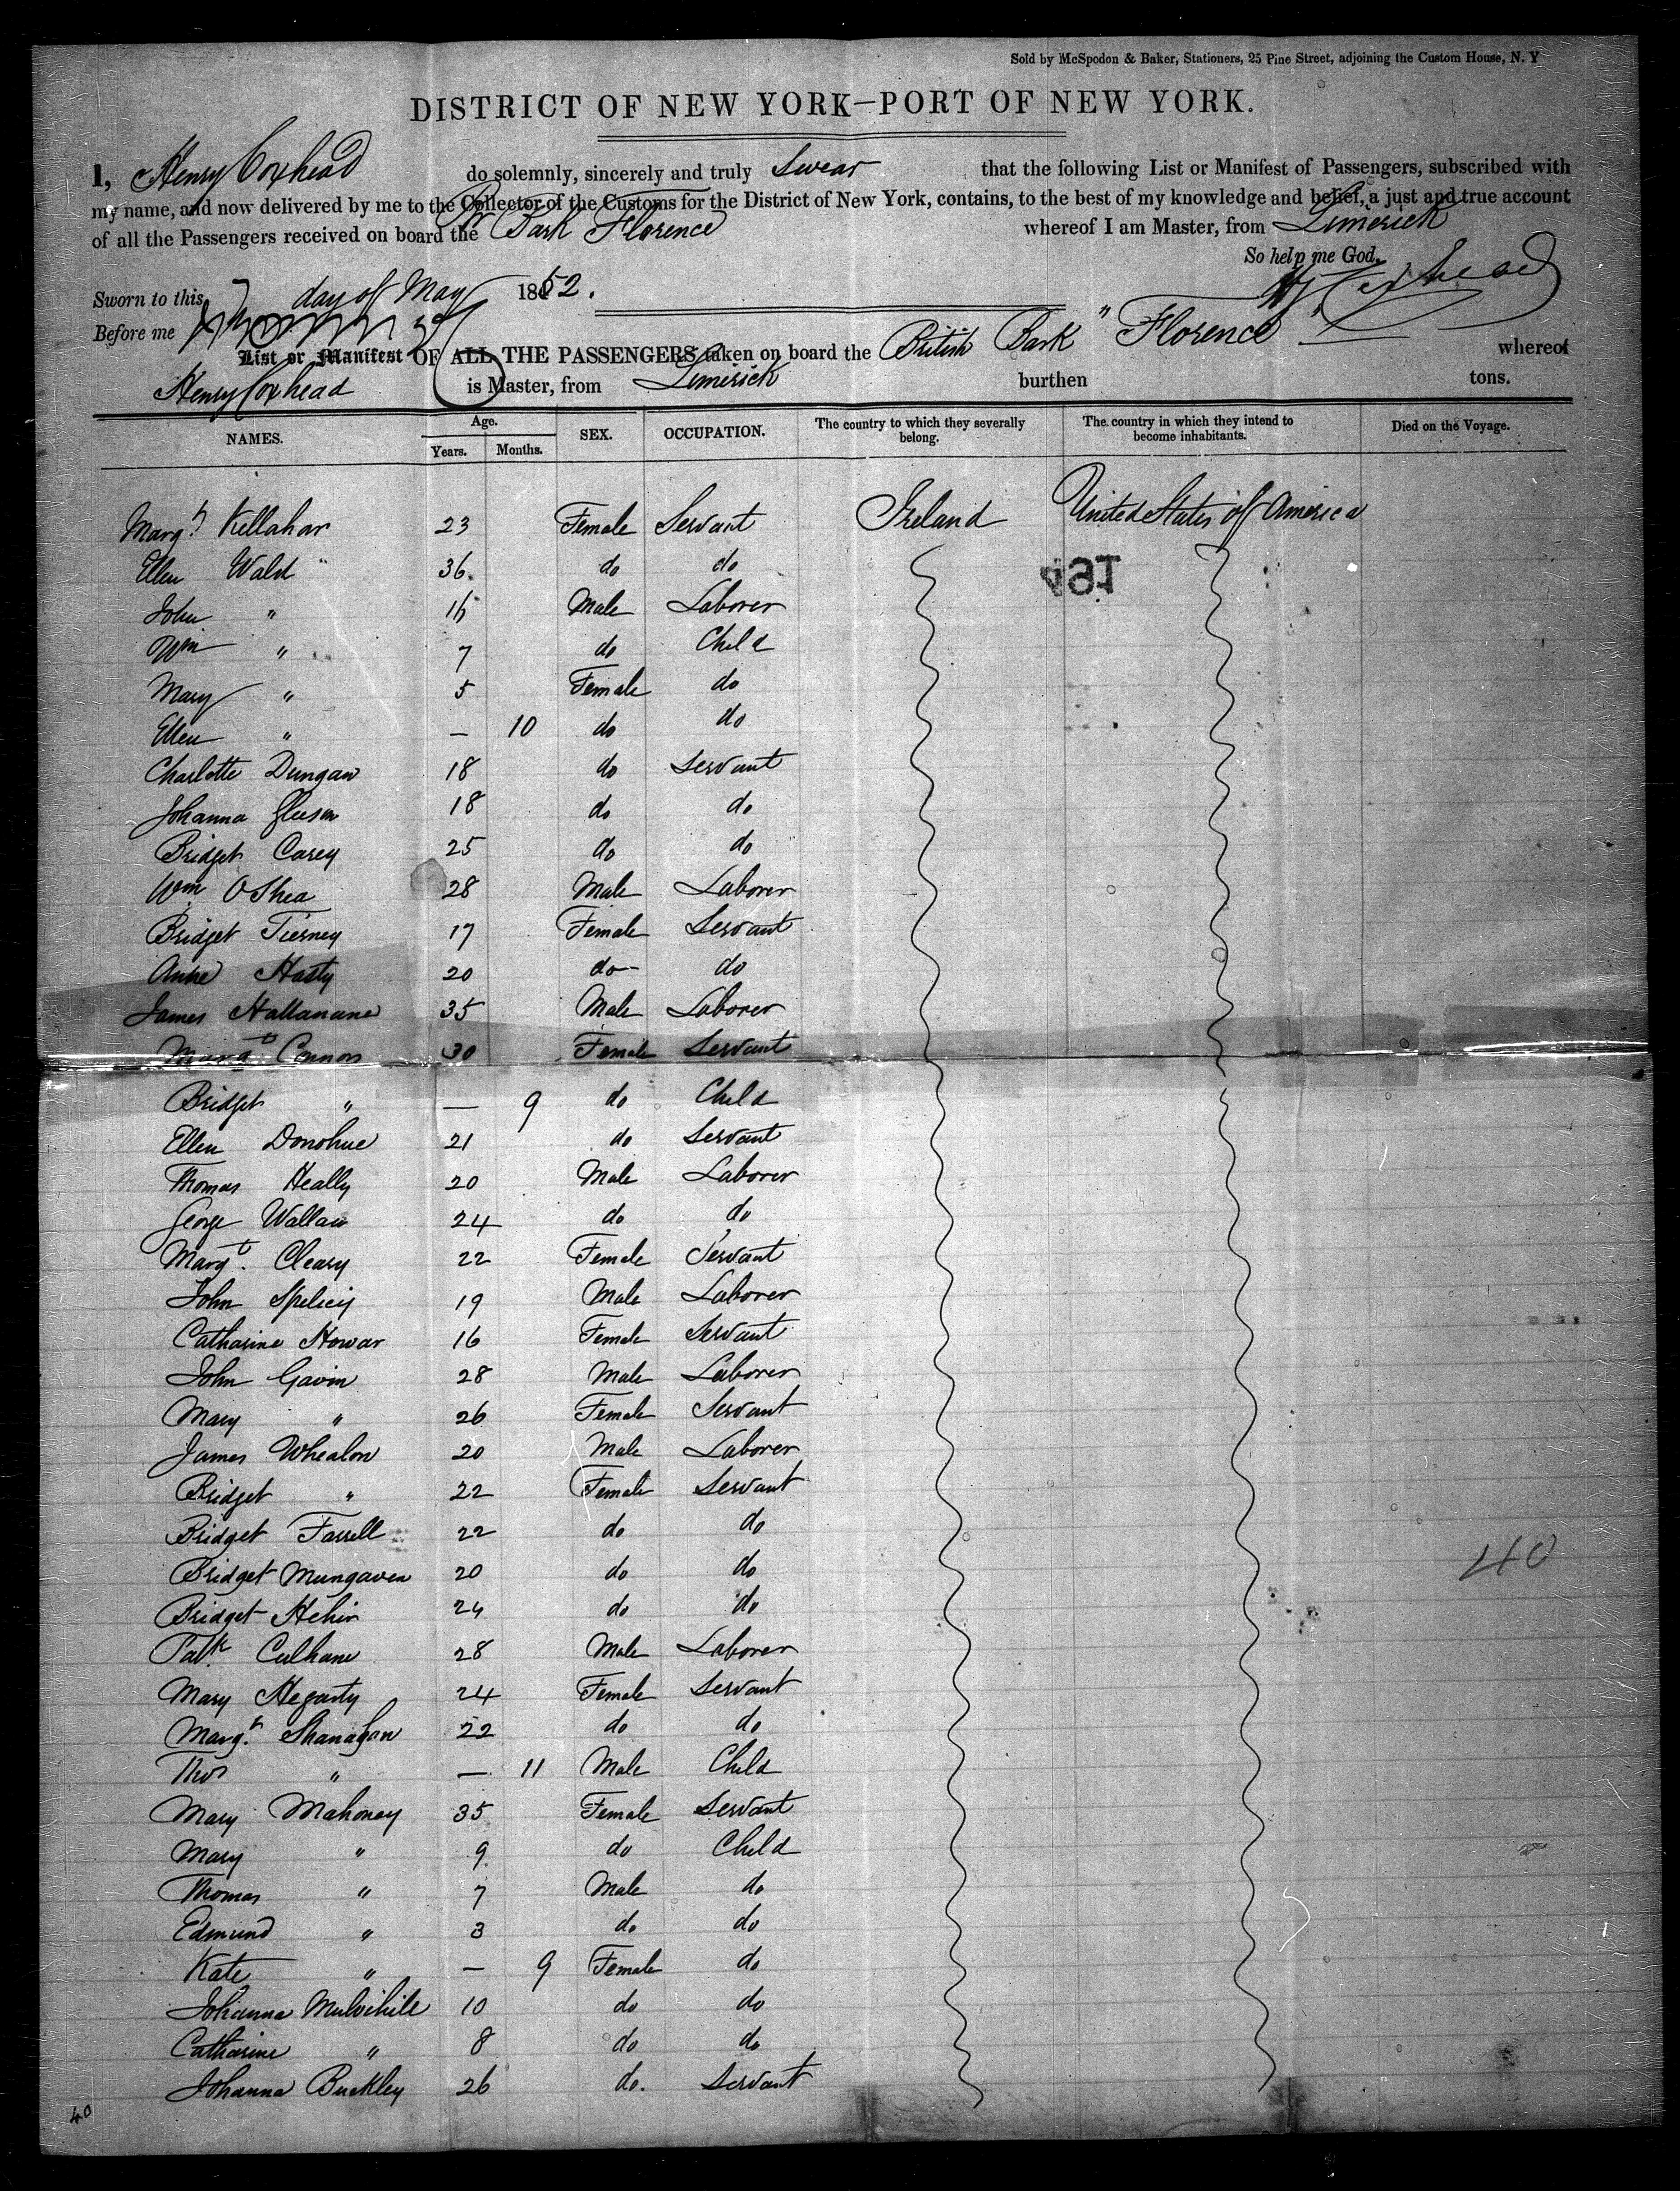 Sold by McSpedon & Baker, Stationers, 25 Pine Street, adjoining the Custom House, N. Y
DISTRICT OF NEW YORK—PORT OF NEW YORK.
I, Henry Coxhead do solemnly, sincerely and truly Swear that the following List or Manifest of Passengers, subscribed with
my name, and now delivered by me to the Collector of the Customs for the District of New York, contains, to the best of my knowledge and belief, a just and true account
of all the Passengers received on board the Br Bark Florence whereof I am Master, from Limerick
So help me God.
Sworn to this 7 day of May 1852. H Coxhead
Before me
List or Manifest OF ALL THE PASSENGERS taken on board the British Bark "Florence" whereof
Henry Coxhead is Master, from Limerick burthen tons.
NAMES. Age. Years. Months. SEX. OCCUPATION. The country to which they severally belong. The country in which they intend to become inhabitants. Died on the Voyage.
Margt Kellahar 23 Female Servant Ireland United States of America
Ellen Walsh 36 do do
John " 15 Male Laborer
Wm " 7 do Child
Mary " 5 Female do
Ellen " — 10 do do
Charlotte Dungan 18 do Servant
Johanna Gleeson 18 do do
Bridget Carey 25 do do
Wm OShea 28 Male Laborer
Bridget Tierney 17 Female Servant
Anne Hasty 20 do do
James Hallanane 35 Male Laborer
Margt Connors 30 Female Servant
Bridget " — 9 do Child
Ellen Donohue 21 do Servant
Thomas Heally 20 Male Laborer
George Wallace 24 do do
Margt. Cleary 22 Female Servant
John Spelicy 19 Male Laborer
Catharine Howar 16 Female Servant
John Gavin 28 Male Laborer
Mary " 26 Female Servant
James Whealon 20 Male Laborer
Bridget " 22 Female Servant
Bridget Farrell 22 do do
Bridget Mungaven 20 do do
Bridget Hehir 24 do do
Patk Culhane 28 Male Laborer
Mary Hegarty 24 Female Servant
Margt. Shanahan 22 do do
Thos " — 11 Male Child
Mary Mahoney 35 Female Servant
Mary " 9 do Child
Thomas " 7 Male do
Edmund " 3 do do
Kate " — 9 Female do
Johanna Mulvihile 10 do do
Catharine " 8 do do
Johanna Buckley 26 do. Servant
40
40